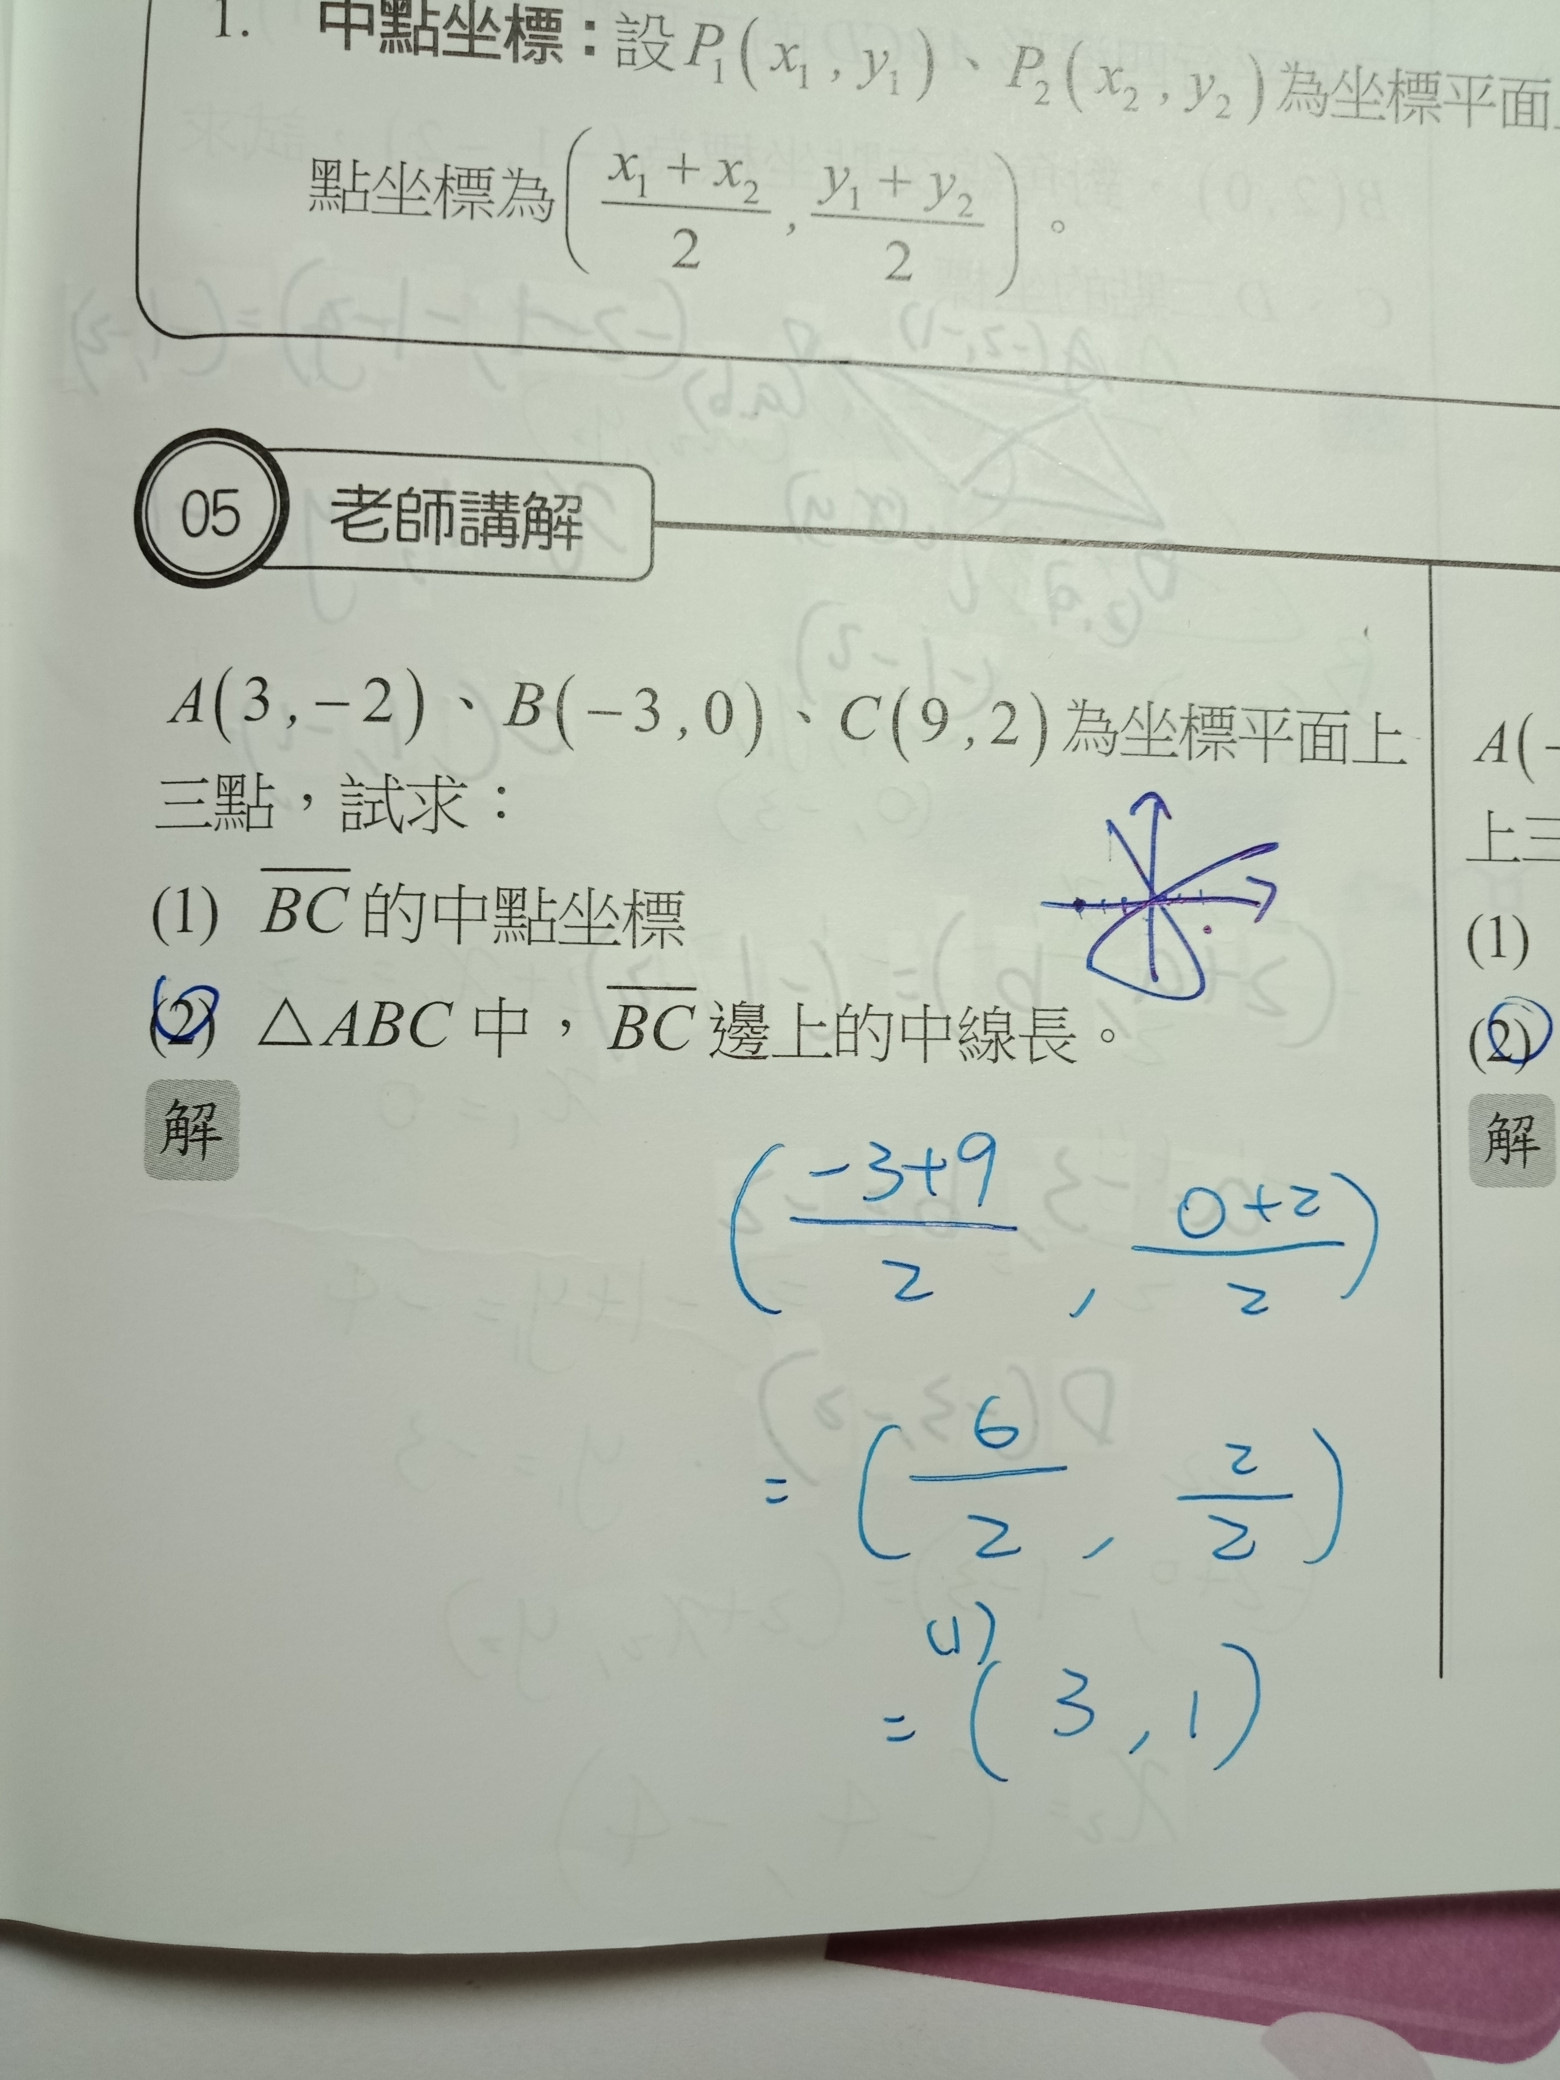 1. 中點坐標：設P₁(x₁, y₁)、P₂(x₂, y₂)為坐標平面
點坐標為((x₁+x₂)/2, (y₁+y₂)/2)。
05 老師講解
A(3,−2)、B(−3,0)、C(9,2)為坐標平面上
三點，試求：
(1) B̅C̅的中點坐標
(2) △ABC中，B̅C̅邊上的中線長。
解
((-3+9)/2, (0+2)/2)
= (6/2, 2/2)
(1)
= (3, 1)
A(-
上三
(1)
(2)
解